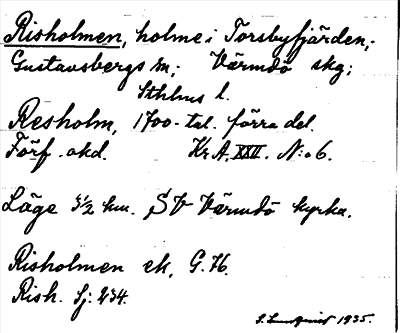 Risholmen, holme i Torsbyfjärden,
Gustavsbergs sn; Värmdö skg;
Sthlms l.
Resholm, 1700-tal. förra del.
Förf. okd. Kr.A. XXII. N:o 6.
Läge 3 1/2 km. SV Värmdö kyrka.
Risholmen ek. G.76.
Rish. Sj. 234.
S. Lundqvist 1935.